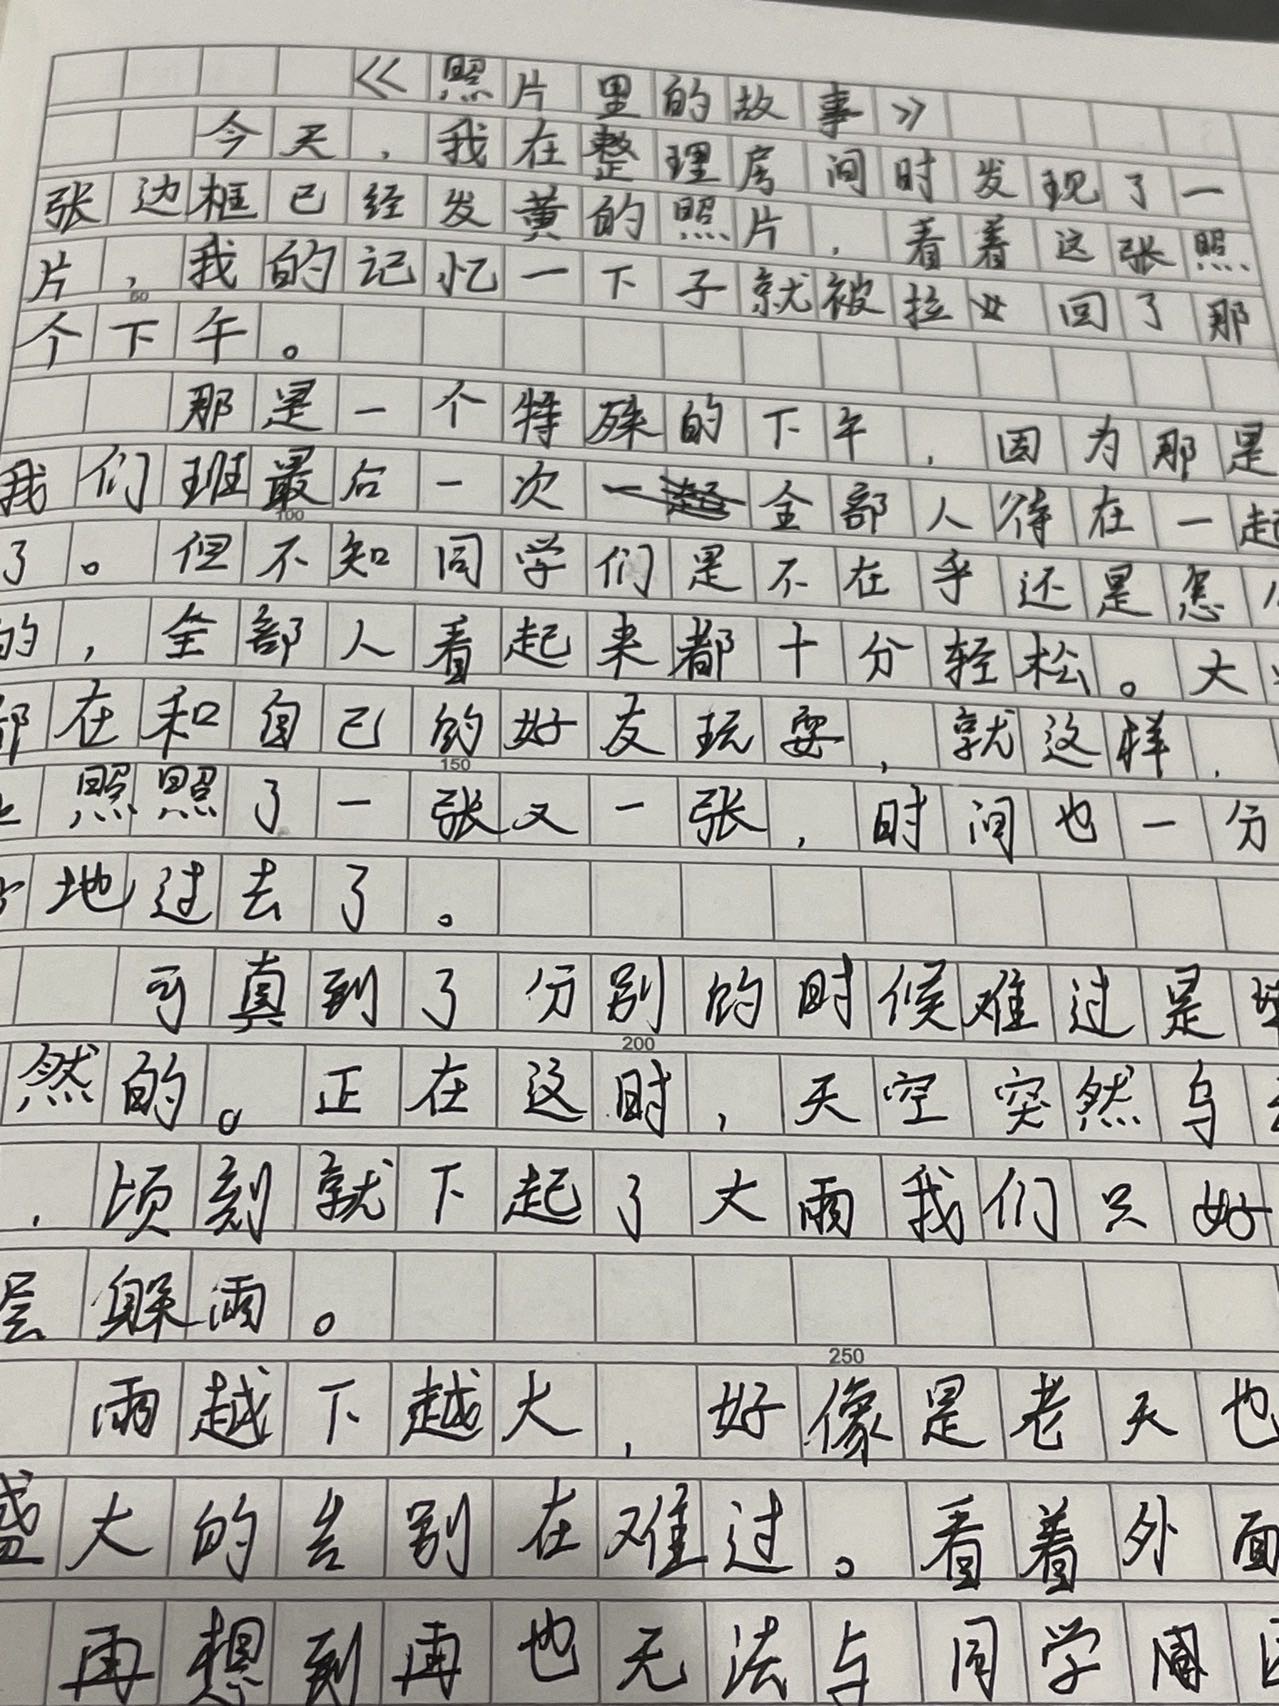 《照片里的故事》
今天，我在整理房间时发现了一
张边框已经发黄的照片，看着这张照
片，我的记忆一下子就被拉回了那
60
个下午。
那是一个特殊的下午，因为那是
我们班最后一次全部人待在一起
100
了。但不知同学们是不在乎还是怎
的，全部人看起来都十分轻松。大
都在和自己的好友玩耍，就这样，
150
照照了一张又一张，时间也一分
地过去了。
可真到了分别的时候难过是
200
然的。正在这时，天空突然乌
，顷刻就下起了大雨我们只好
层躲雨。
250
雨越下越大，好像是老天也
盛大的告别在难过。看着外面
再想到再也无法与同学